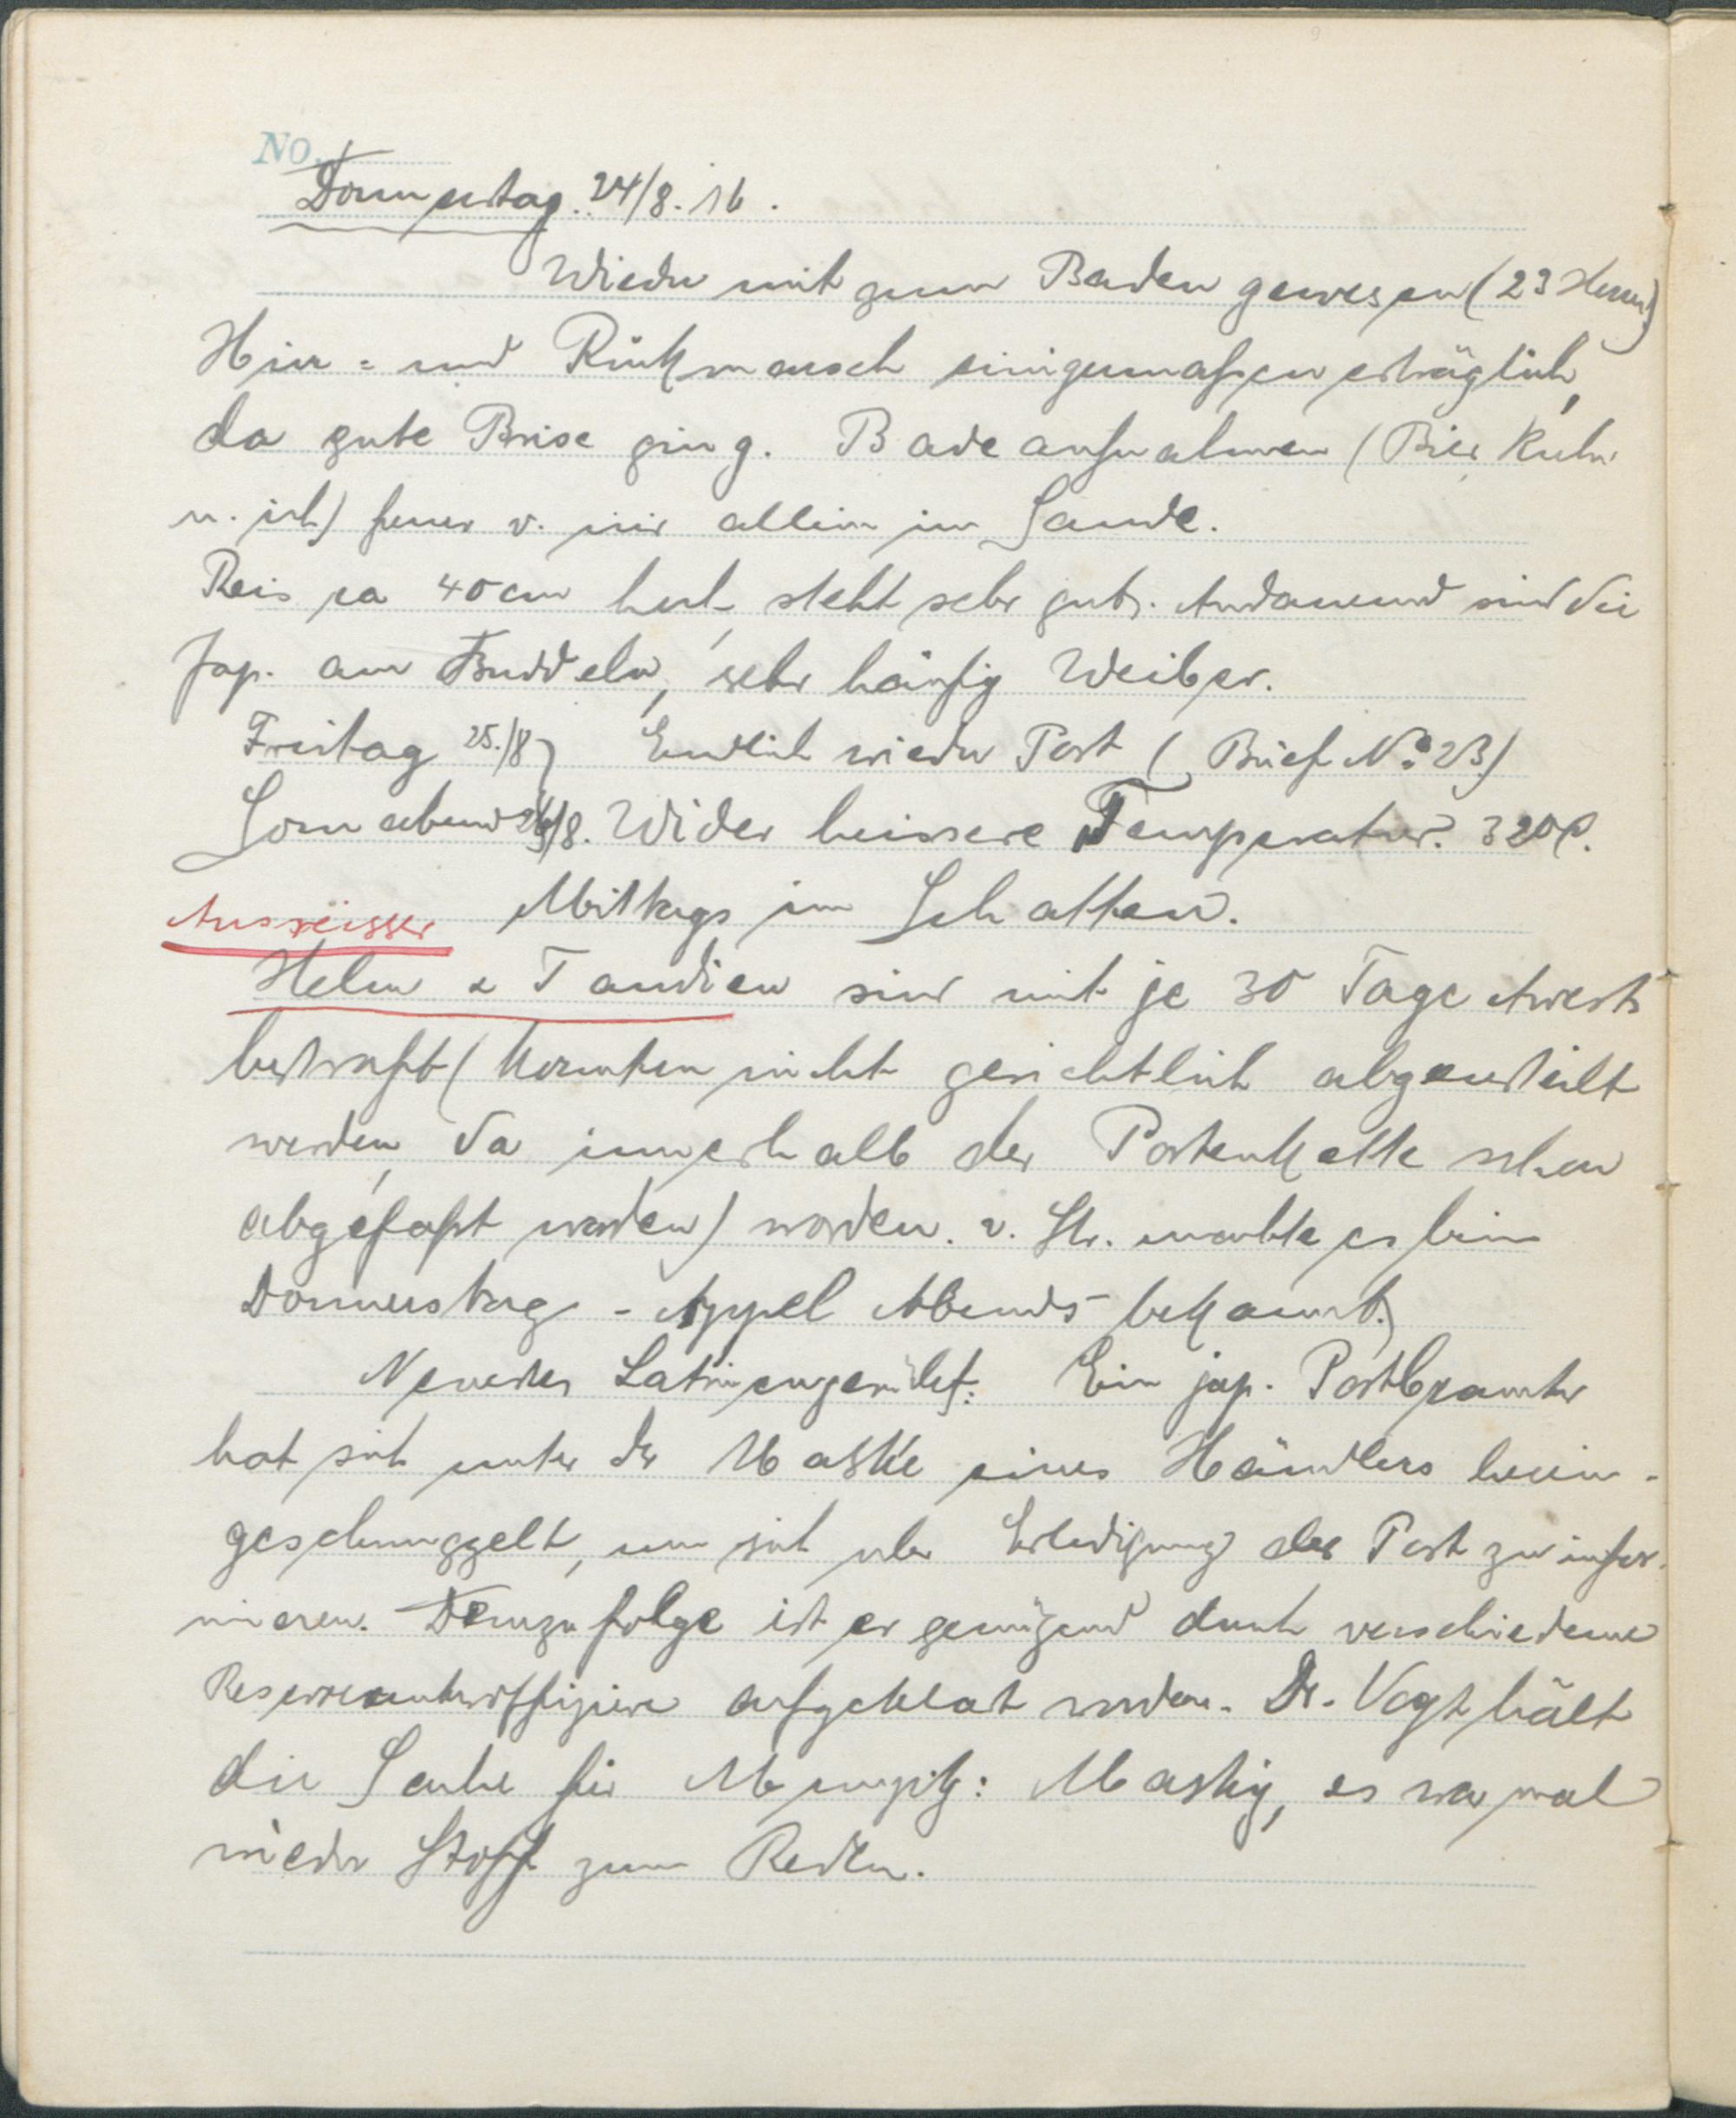 No.
Donnerstag. 24/8. 16.
Wieder mit zum Baden gewesen (23 Herren)
Hin = und Rückmarsch einigermaßen erträglich,
da gute Brise ging. Badeaufnahmen (Bier Kuhn
u. ich) ferner v. mir allein im Sande.
Reis ca 40 cm hoch, steht sehr gut. Andauernd sind die
Jap. am Buddeln, sehr häufig Weiber.
Freitag 25./8 Endlich wieder Post (Brief No 23)
Sonnabend 26/8. Wider heissere Temperatur. 32° C.
Mittags im Schatten.
Ausreisser
Helm & Tandien sind mit je 30 Tage Arrest
bestraft (konnten nicht gerichtlich abgeurteilt
werden, da innerhalb der Postenkette schon
abgefaßt worden) worden. v. Str. machte es beim
Donnerstag - Appel Abends bekannt.
Neuestes Latrinengerücht: Ein jap. Postbeamter
hat sich unter der Maske eines Händlers herein-
geschmuggelt, um sich über Erledigung der Post zu infor-
mieren. Demzufolge ist er genügend durch verschiedene
Reserveunteroffiziere aufgeklärt worden. Dr. Vogt hält
die Sache für Mumpitz: Maskig, es war mal
wieder Stoff zum Reden.